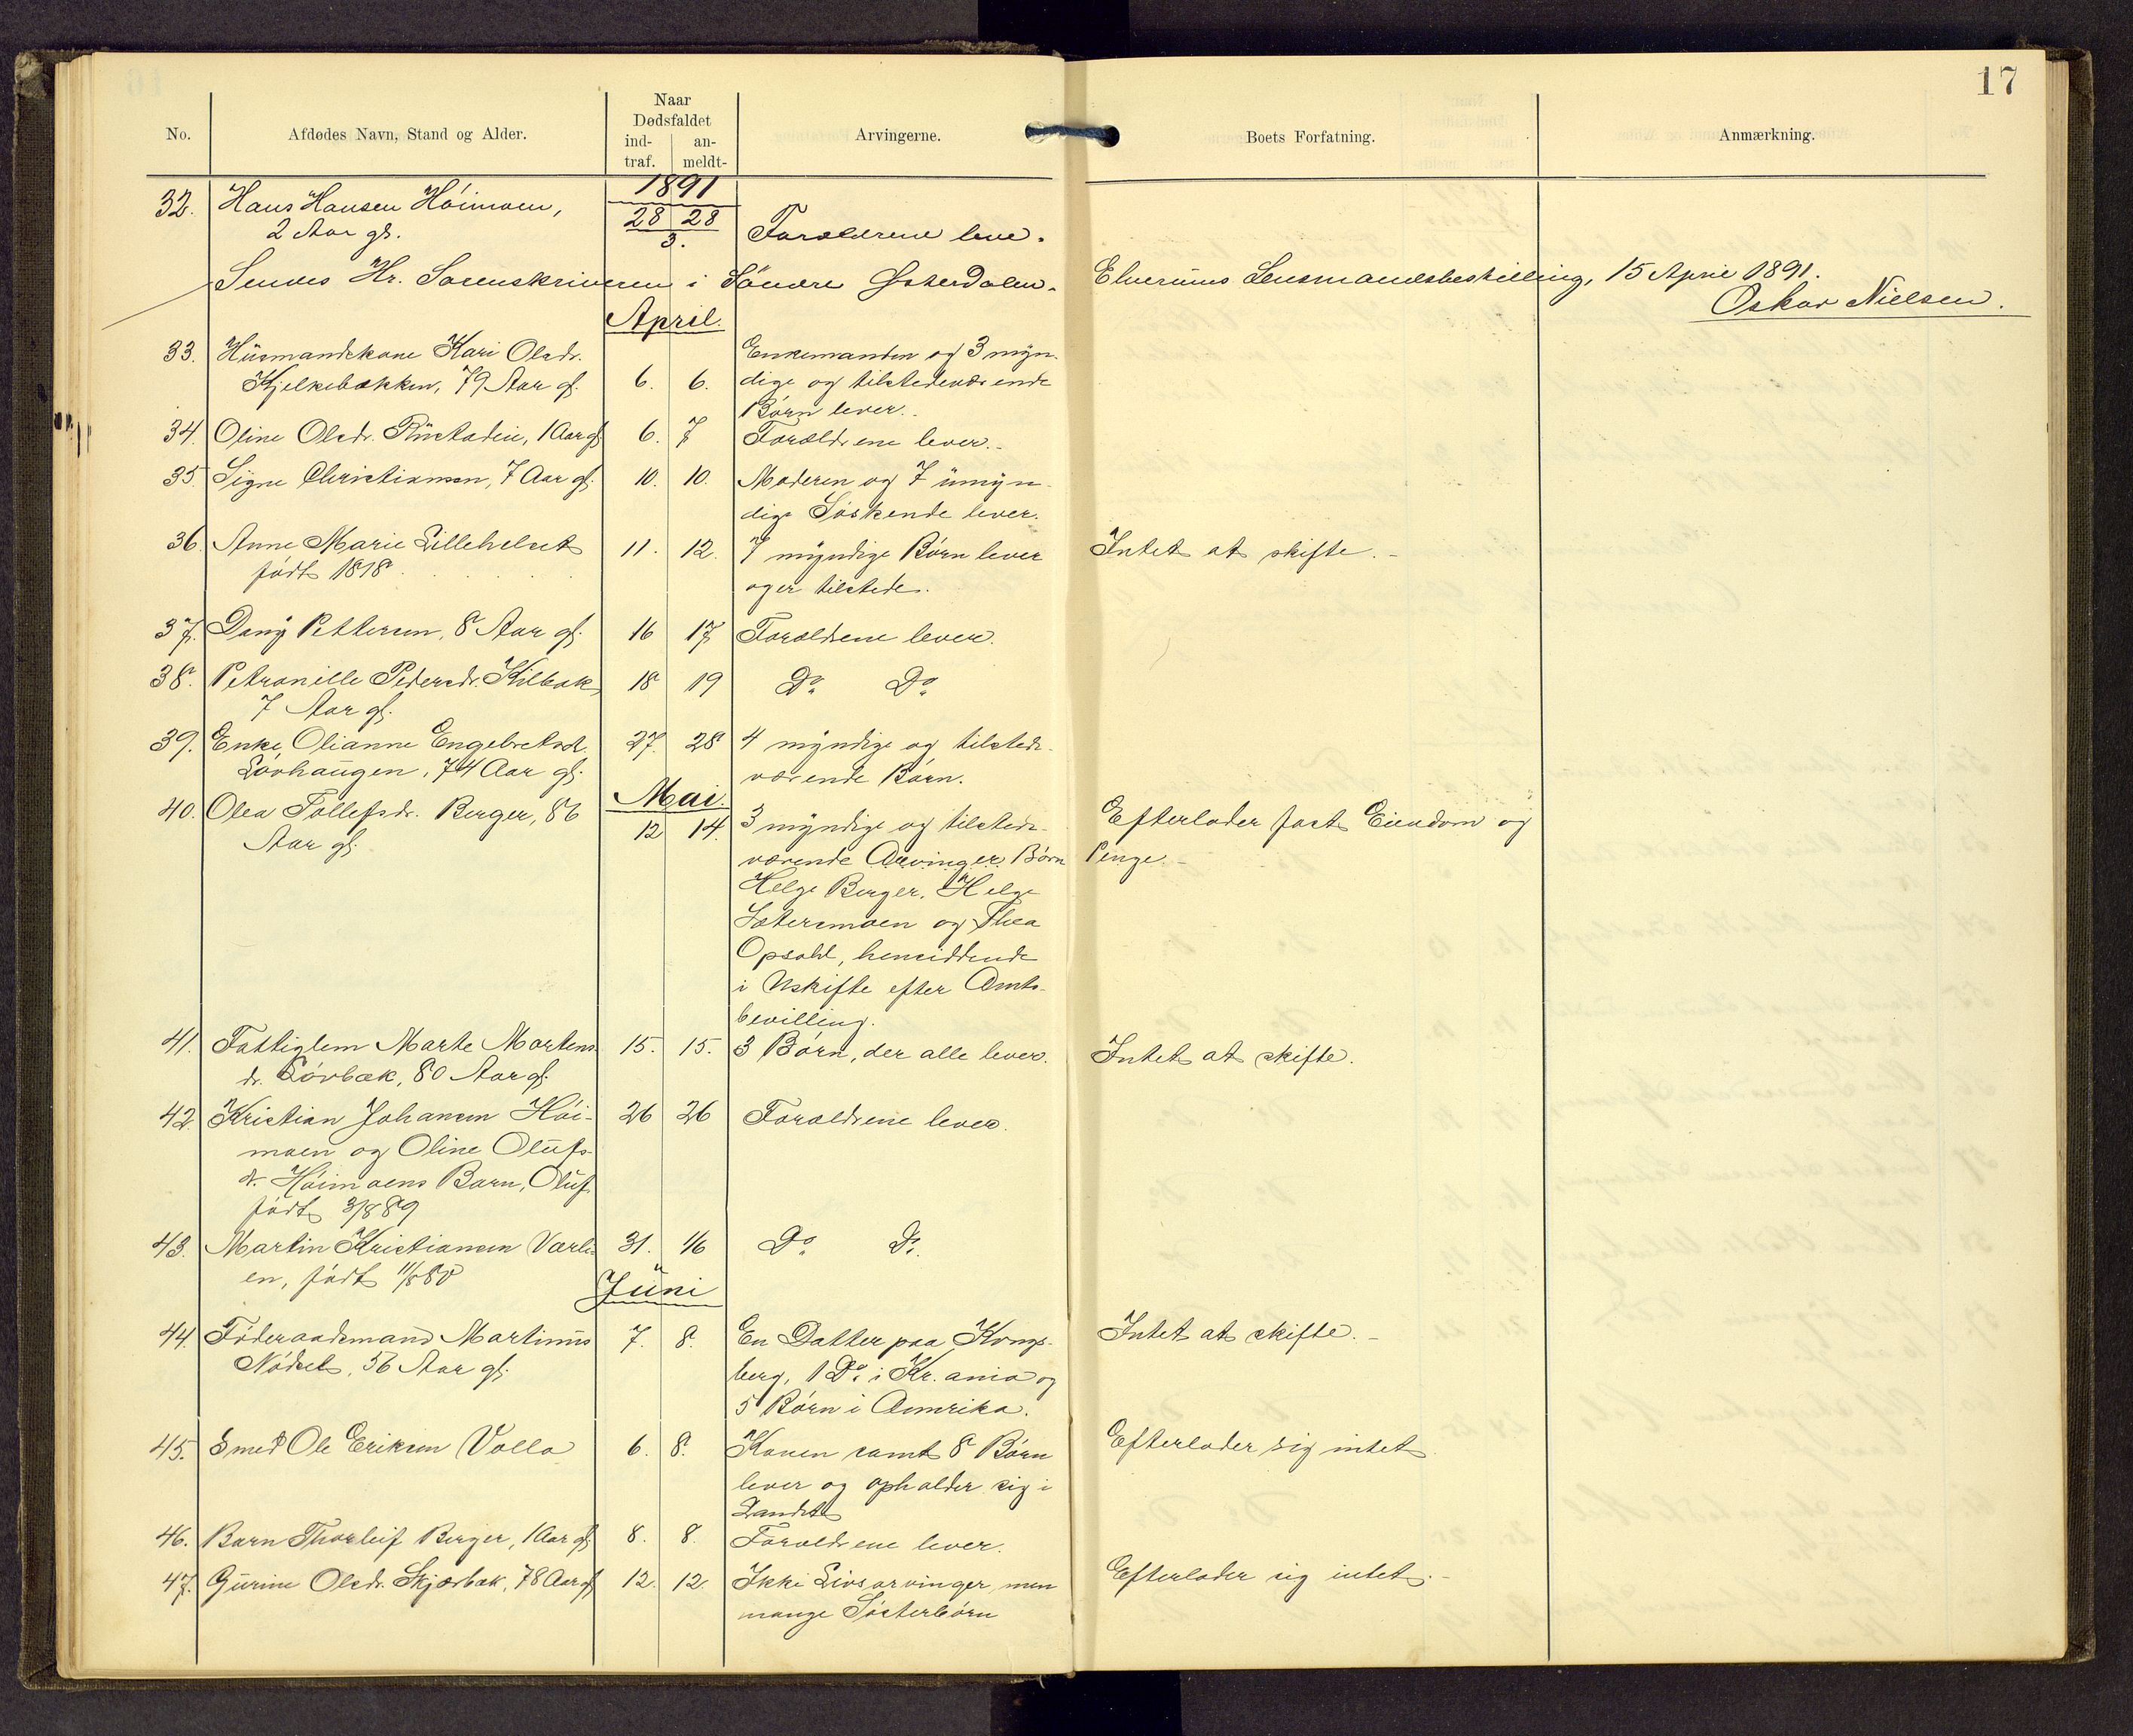 17
No.
Afdødes Navn, Stand og Alder.
Naar
Dødsfaldet
ind-
traf.
an-
meldt-
Arvingerne.
Boets Forfatning.
Anmærkning.
1891
32. Hans Hansen Höimoen, 28 28
2 Aar gl. 3. Forældrene leve.
Sendes Hr. Sorenskriveren i Söndre Østerdalen. Elverums Lensmandsbestilling, 15 April 1891.
Oskar Nielsen.
April.
33. Husmandskone Kari Olsdr. Enkemanden og 3 myn-
Kjelkebækken, 79 Aar gl. 6. 6. dige og tilstedeværende
Börn lever.
34. Oline Olsdr. 1 Aar gl 6. 7 Forældrene lever.
35. Signe Christiansen, 7 Aar gl. 10. 10. Moderen og 7 umyn-
dige Söskende lever.
36. Anne Marie Lillehelset 11. 12. 7 myndige Börn lever Intet at skifte.-
födt 1818 og er tilstede.
37. Dany Pettersen, 8 Aar gl. 16 17 Forældrene lever.
38. Petronille Pedersdr. Kilbak, 18 19 Do Do
7 Aar gl.
39. Enke Olianne Engebretsd. 27. 28 4 myndige og tilstede-
Lövhaugen, 74 Aar gl. værende Börn.
Mai.
40. Olea Tollefsdr. Berger, 86 12 14. 3 myndige og tilstede- Efterlader fast Eiendom og
Aar gl. værende Arvinger. Börn Penge.-
Helge Berger, Helge
Sætersmoen og Thea
Opsahl, hensiddende
i Uskifte efter Amts-
bevilling.
41. Fattiglem Marte Martens- 15. 15. 3 Börn, der alle lever. Intet at skifte.
dr. Lövbæk, 80 Aar gl.
42. Kristian Johansen Höi- 26 26 Forældrene lever.
moen og Oline Olufs-
dr. Höimoens Barn, Oluf
födt 3/8 89
43. Martin Kristiansen Varli- 31. 1/6 Do Do
en, födt 11/5 80
Juni
44. Föderaadsmand Martinus 7. 8. En Datter paa Kongs- Intet at skifte.-
Nödset, 56 Aar gl. berg, 1 Do i Kr.ania og
5 Börn i Amerika.
45. Smed Ole Eriksen Volla 6. 8. Konen samt 8 Börn Efterlader sig intet
lever og opholder sig i
Landet
46. Barn Thorleif Berger, 1 Aar gl. 8. 8. Forældrene lever.
47. Gurine Olsdr. Skjærbæk, 78 Aar gl 12. 12. Ikke Livsarvinger, men Efterlader sig intet.-
mange Sösterbörn